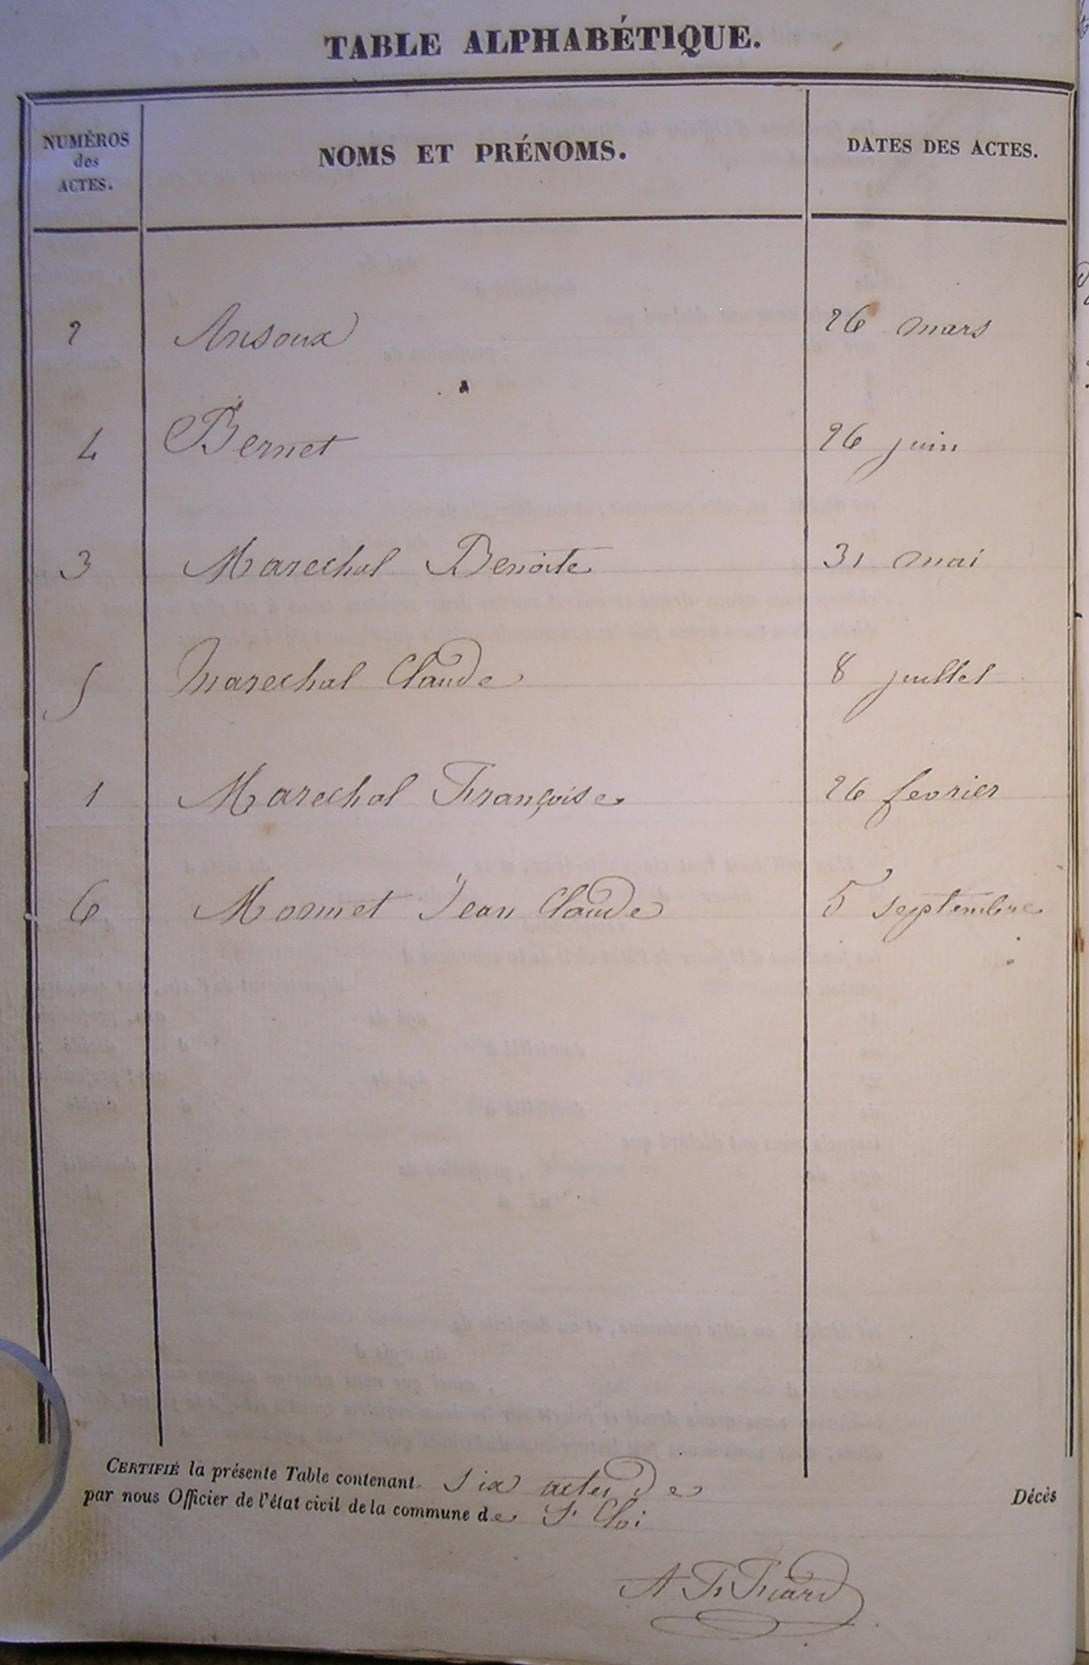 TABLE ALPHABÉTIQUE.
NUMÉROS des ACTES.
NOMS ET PRÉNOMS.
DATES DES ACTES.
2 Ansoux 26 mars
4 Bernet 26 juin
3 Marechal Benoite 31 mai
5 Marechal Claude 8 juillet
1 Marechal Françoise 26 fevrier
6 Monnet Jean Claude 5 septembre
CERTIFIÉ la présente Table contenant six actes de
par nous Officier de l'état civil de la commune de St Eloi
Décès